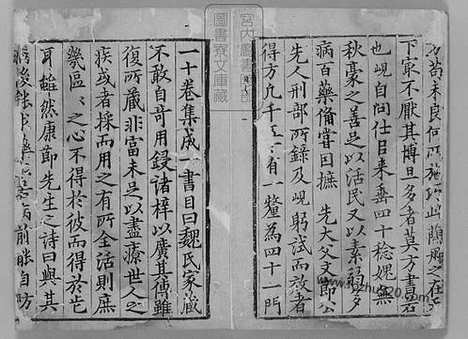 方苟未良何所施巧此
下家不厭其博旦夕者莫方書若
也峴自問仕目来垂四十稔媿無
秋豪之善足以活民又以素弱多
病百藥偹嘗曰摭先大父文節公
先人刑部所録及峴躬試而效者
得方凡千有一釐為四十一門
一十卷集成一書目曰魏氏家藏
不敢自奇用鋟諸梓以廣其傳雖
復所藏非富未足以盡療世人之
疾或者采而用之有所全活則庶
幾區區之心不得於彼而得於此
耳雖然康節先生之詩曰與其
病後能求藥不若病前能自防
宮内廳書
圖書寮文庫藏